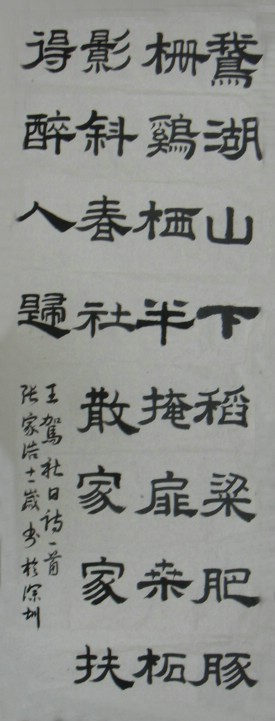 鵞湖山下稻粱肥豚
栅鷄栖半掩扉桒柘
影斜春社散家家扶
得醉人歸
王駕社日诗一首
张家浩十一歲书於深圳